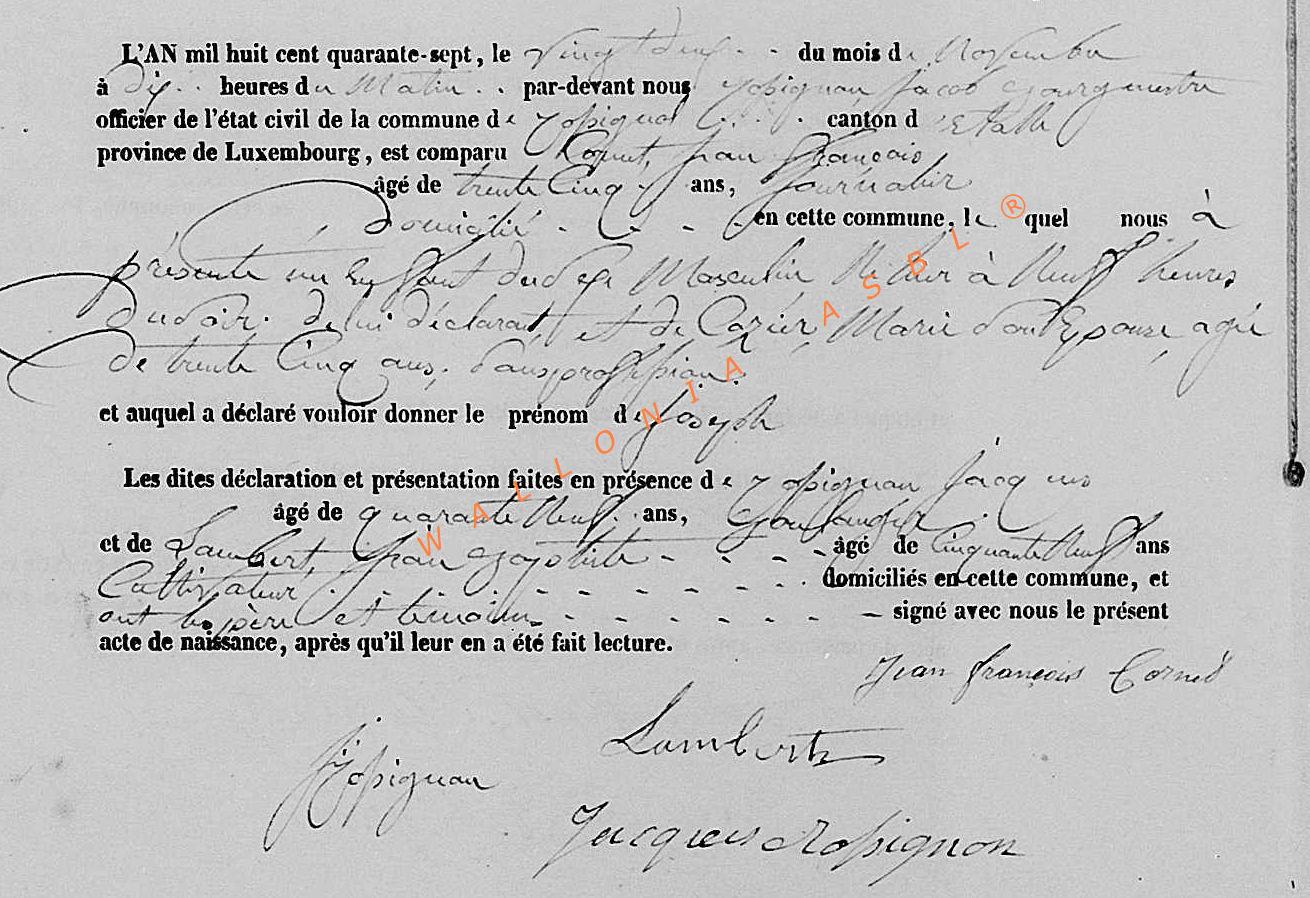 L'AN mil huit cent quarante-sept, le vingt deux du mois de Novembre
à Dix heures du Matin par-devant nous Rossignon Jacob Bourgmestre
officier de l'état civil de la commune de Rossignol canton d'Etalle
province de Luxembourg, est comparu Cornet, Jean François
âgé de trente Cinq ans, Journalier
Domicilié en cette commune, lequel nous à
présenté un Enfant du Sexe Masculin Né hier à Neuf heures
du Soir. de lui déclarant et de Marie Son Epouse agée
de trente Cinq ans, Sans profession
et auquel a déclaré vouloir donner le prénom de Joseph
Les dites déclaration et présentation faites en présence de Rossignon Jacques
âgé de quarante Neuf ans, Boulanger
et de Lambert, Jean Baptiste âgé de Cinquante Neuf ans
Cultivateur domiciliés en cette commune, et
ont les père et témoins signé avec nous le présent
acte de naissance, après qu'il leur en a été fait lecture.
Jean françois Cornet
Lambert
J Rossignon
Jacques Rossignon
WALLONIA ASBL ®